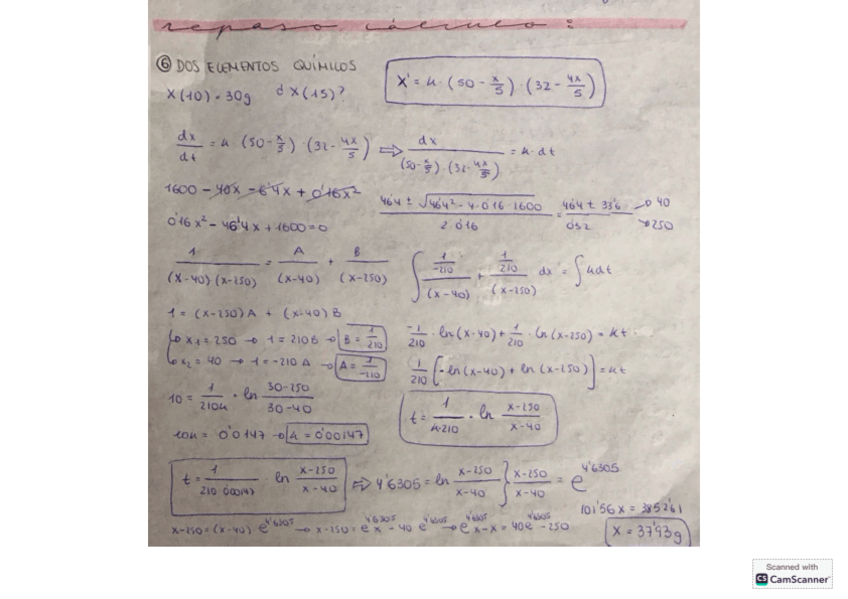 repaso cálculo:
⑥ DOS ELEMENTOS QUÍMICOS
X(10) = 30g d X(15)?
X' = k · (50 - x/5) · (32 - 4x/5)
dx/dt = k · (50 - x/5) · (32 - 4x/5) ⇒ dx / (50 - x/5) · (32 - 4x/5) = k · dt
1600 - 40x - 6'4x + 0'16x²
0'16x² - 46'4x + 1600 = 0
46'4 ± √46'4² - 4 · 0'16 · 1600 / 2 · 0'16 = 46'4 ± 33'6 / 0'32 → 40 → 250
1 / (x-40)(x-250) = A / (x-40) + B / (x-250)
∫ 1/-210 / (x-40) + 1/210 / (x-250) dx = ∫ k dt
1 = (x-250) A + (x-40) B
↳ x₁ = 250 → 1 = 210B → B = 1/210
↳ x₂ = 40 → 1 = -210 A → A = 1/-210
-1/210 · ln (x-40) + 1/210 · ln (x-250) = kt
1/210 [-ln (x-40) + ln (x-250)] = kt
10 = 1/210k · ln 30-250/30-40
t = 1/k·210 · ln x-250/x-40
10k = 0'0147 → k = 0'00147
t = 1 / 210 · 0'00147 ln x-250/x-40 ⇒ 4'6305 = ln x-250/x-40 } x-250/x-40 = e^4'6305
101'56x = 3852'61
x-250 = (x-40) e^4'6305 → x-250 = e^4'6305 x - 40 e^4'6305 → e^4'6305 x - x = 40e^4'6305 - 250
X = 37'93g
Scanned with
CS CamScanner